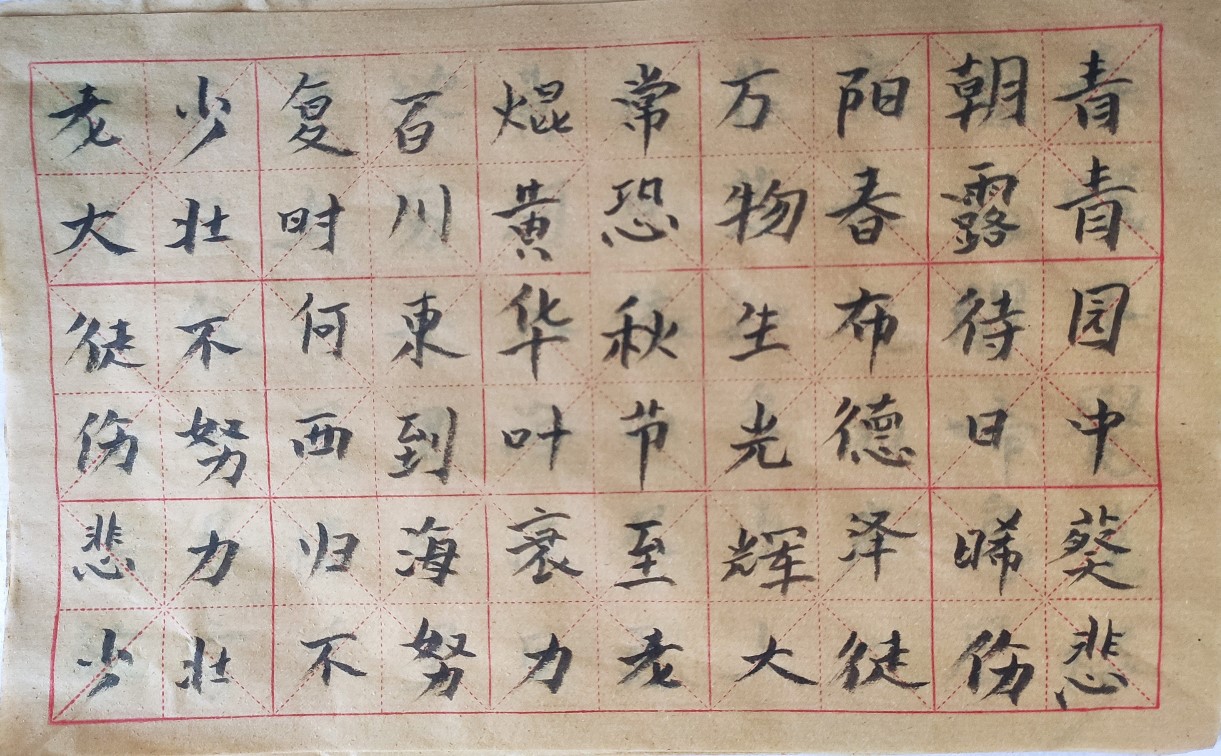 青青园中葵
朝露待日晞
阳春布德泽
万物生光辉
常恐秋节至
焜黄华叶衰
百川東到海
复时何西归
少壮不努力
老大徒伤悲
少壮不努力老大徒伤悲